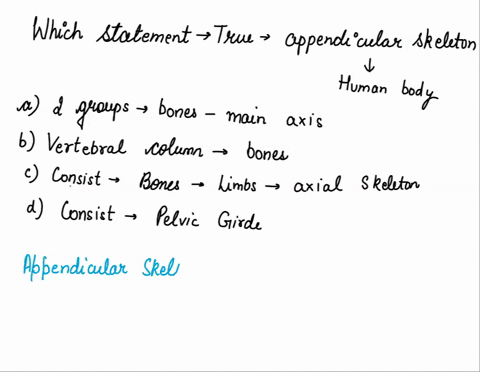 Which statement → True → appendicular skeleton
↓
Human body
a) d groups → bones - main axis
b) Vertebral column → bones
c) Consist → Bones → Limbs → axial Skeleton
d) Consist → Pelvic Girde
Appendicular Skel